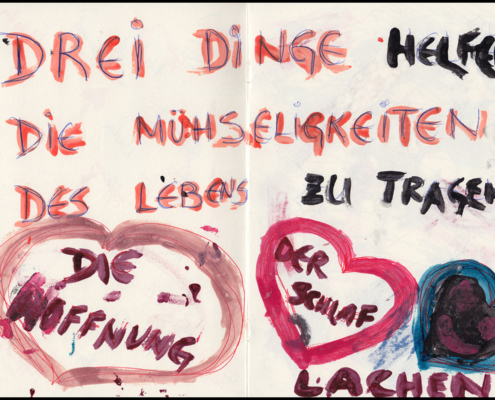 DREI DINGE HELFE
DIE MÜHSELIGKEITEN
DES LEBENS ZU TRAGEN
DIE HOFFNUNG
DER SCHLAF
LACHEN